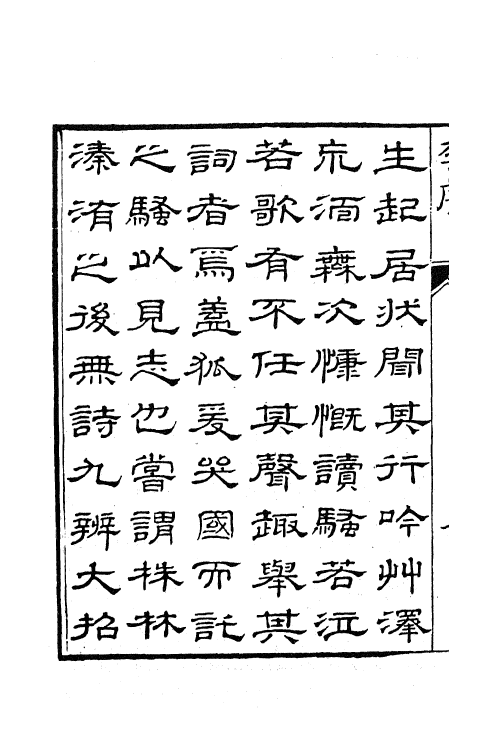 生起居狀聞其行吟艸澤
宂湎橆次慷慨讀騷若泣
若歌有不任其聲趣舉其
詞者焉蓋狐爰哭國而託
之騷以見志也嘗謂株林
溱洧之後無詩九辨大招